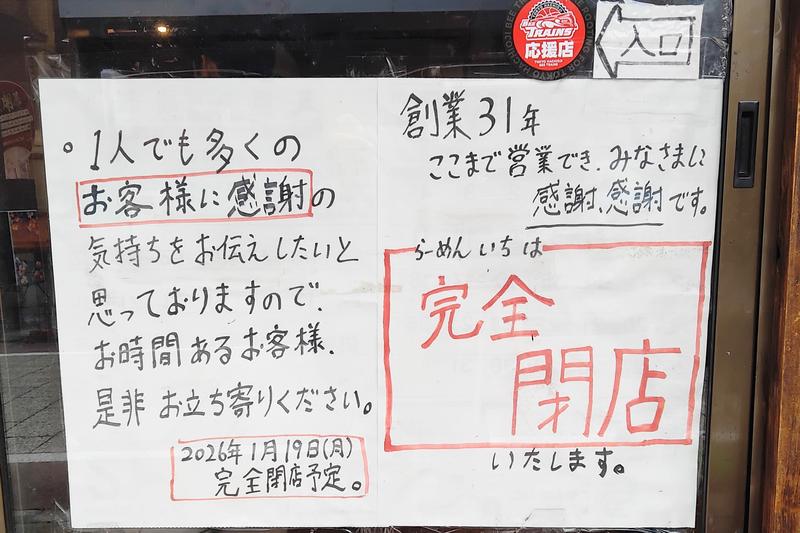 BEE TRAINS
応援店
TOKYO HACHIOJI
BEE TRAINS
入口
創業31年
ここまで営業でき、みなさまに
感謝、感謝です。
らーめんいちは
完全
閉店
いたします。
。1人でも多くの
お客様に感謝の
気持ちをお伝えしたいと
思っておりますので、
お時間あるお客様、
是非お立ち寄りください。
2026年1月19日(月)
完全閉店予定。